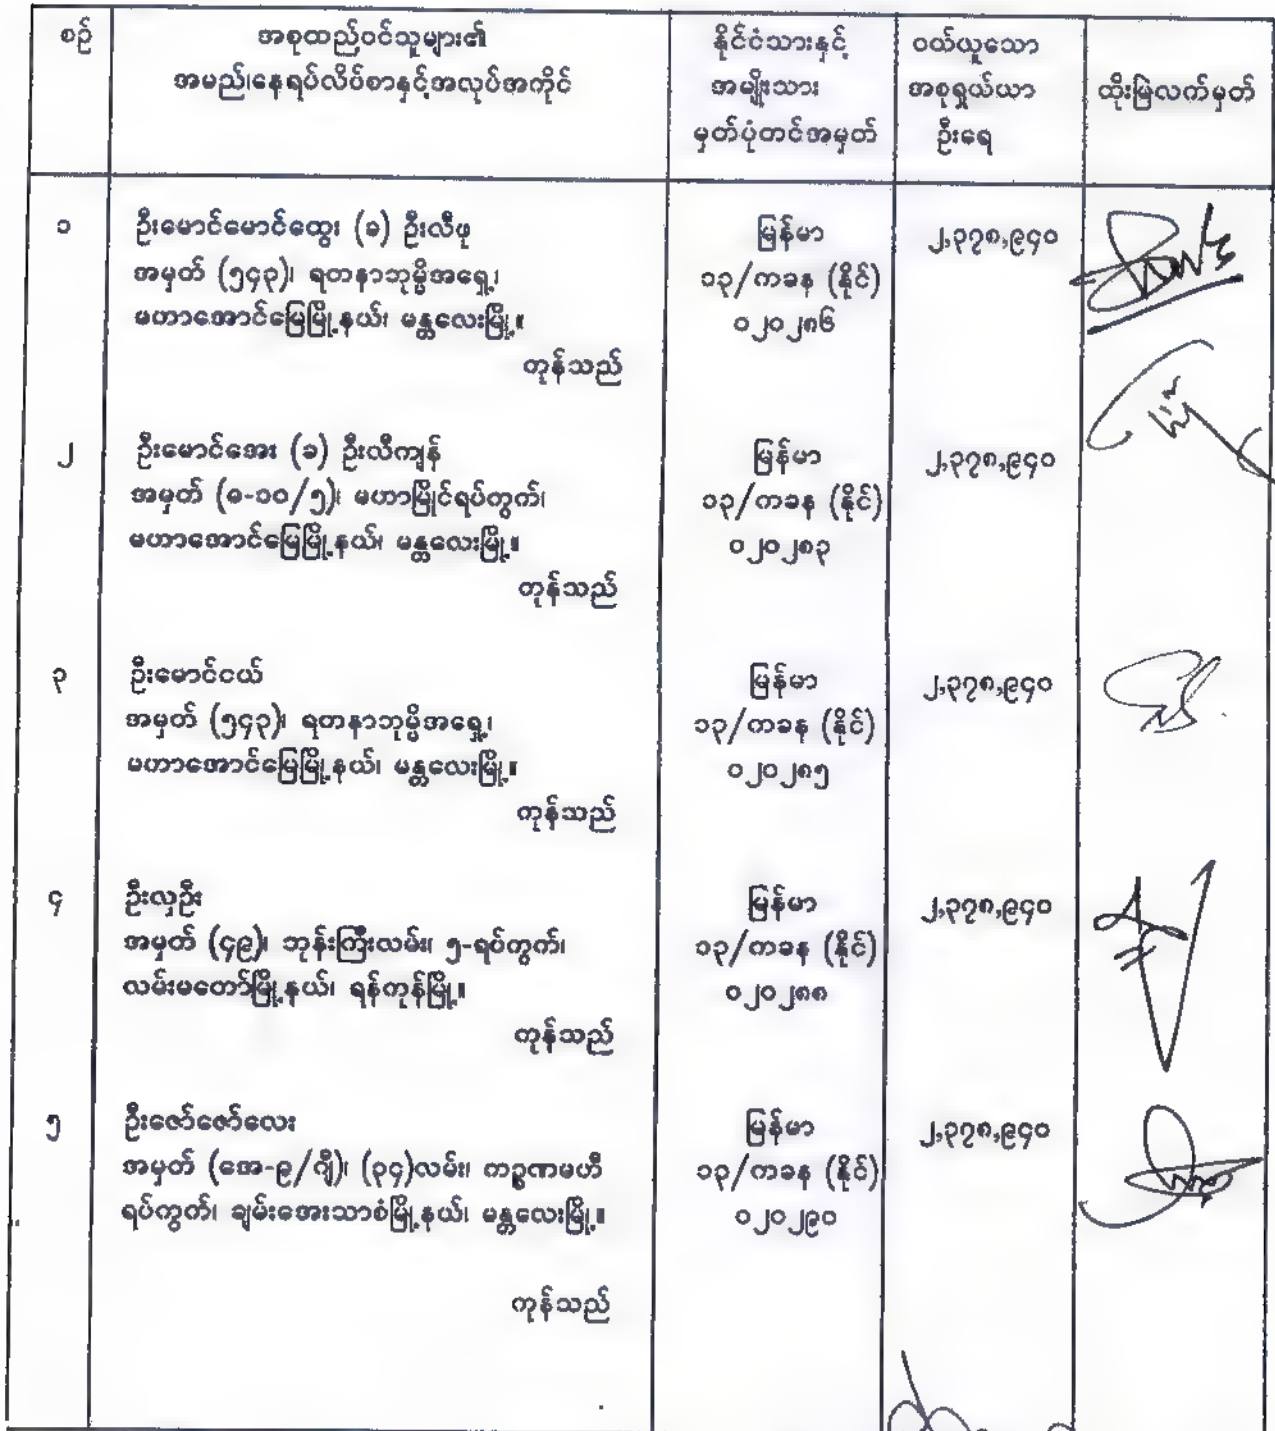 စဉ်
အစုထည်ဝင်သူများ၏
အမည်၊နေရပ်လိပ်စာနှင့်အလုပ်အကိုင်
နိုင်ငံသားနှင့်
အမျိုးသား
မှတ်ပုံတင်အမှတ်
ဝယ်ယူသော
အစုရှယ်ယာ
ဦးရေ
ထိုးမြဲလက်မှတ်
၁
ဦးမောင်မောင်ထွေး (ခ) ဦးလီဖု
အမှတ် (၅၄၃)၊ ရတနာဘုမ္မိအရှေ့၊
မဟာအောင်မြေမြို့နယ်၊ မန္တလေးမြို့။
ကုန်သည်
မြန်မာ
၁၃/ကခန (နိုင်)
၀၂၀၂၈၆
၂,၃၇၈,၉၄၀
၂
ဦးမောင်အေး (ခ) ဦးလီကျန်
အမှတ် (ဓ-၁၀/၅)၊ မဟာမြိုင်ရပ်ကွက်၊
မဟာအောင်မြေမြို့နယ်၊ မန္တလေးမြို့။
ကုန်သည်
မြန်မာ
၁၃/ကခန (နိုင်)
၀၂၀၂၈၃
၂,၃၇၈,၉၄၀
၃
ဦးမောင်ငယ်
အမှတ် (၅၄၃)၊ ရတနာဘုမ္မိအရှေ့၊
မဟာအောင်မြေမြို့နယ်၊ မန္တလေးမြို့။
ကုန်သည်
မြန်မာ
၁၃/ကခန (နိုင်)
၀၂၀၂၈၅
၂,၃၇၈,၉၄၀
၄
ဦးလှဦး
အမှတ် (၄၉)၊ ဘုန်းကြီးလမ်း၊ ၅-ရပ်ကွက်၊
လမ်းမတော်မြို့နယ်၊ ရန်ကုန်မြို့။
ကုန်သည်
မြန်မာ
၁၃/ကခန (နိုင်)
၀၂၀၂၈၈
၂,၃၇၈,၉၄၀
၅
ဦးဇော်ဇော်လေး
အမှတ် (အေ-၉/ဂျီ)၊ (၃၄)လမ်း၊ ကဉ္စဏမဟီ
ရပ်ကွက်၊ ချမ်းအေးသာစံမြို့နယ်၊ မန္တလေးမြို့။
ကုန်သည်
မြန်မာ
၁၃/ကခန (နိုင်)
၀၂၀၂၉၀
၂,၃၇၈,၉၄၀